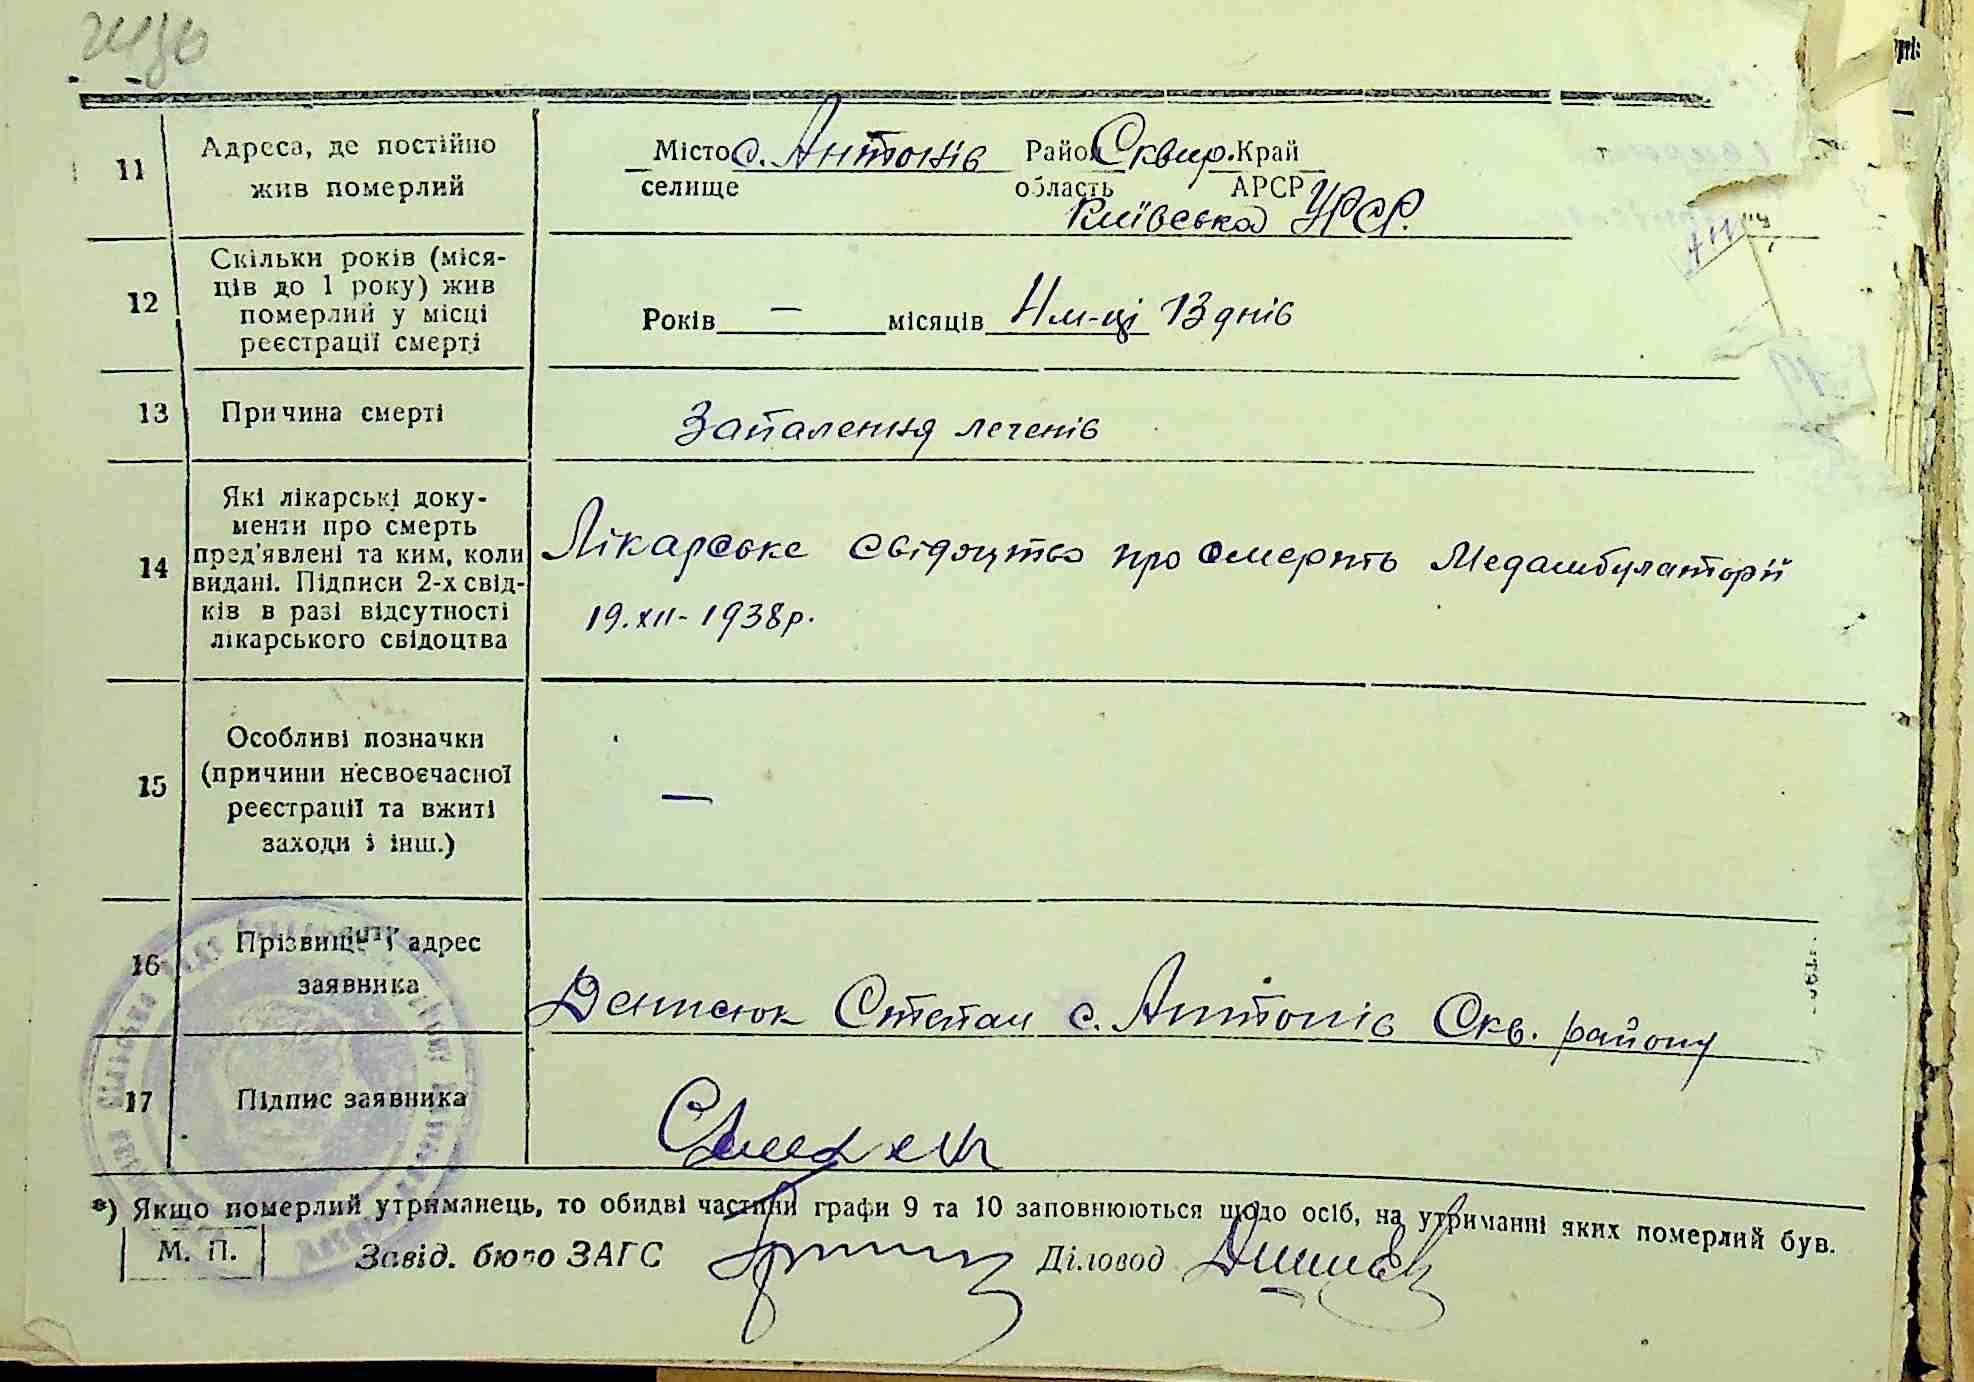 11
Адреса, де постійно
жив померлий
Місто с. Антонів Район Сквир. Край
селище область АРСР
Київська УРСР.
12
Скільки років (міся-
ців до 1 року) жив
померлий у місці
реєстрації смерті
Років — місяців 4 м-ці 13 днів
13
Причина смерті
Запалення легенів
14
Які лікарські доку-
менти про смерть
пред'явлені та ким, коли
видані. Підписи 2-х свід-
ків в разі відсутності
лікарського свідоцтва
Лікарське свідоцтво про смерть Медамбулаторії
19.XII-1938р.
15
Особливі позначки
(причини несвоєчасної
реєстрації та вжиті
заходи і інш.)
—
16
Прізвище і адрес
заявника
Денисюк Степан с. Антонів Скв. району
17
Підпис заявника
*) Якщо померлий утриманець, то обидві частини графи 9 та 10 заповнюються щодо осіб, на утриманні яких померлий був.
М. П.
Завід. бюро ЗАГС Діловод